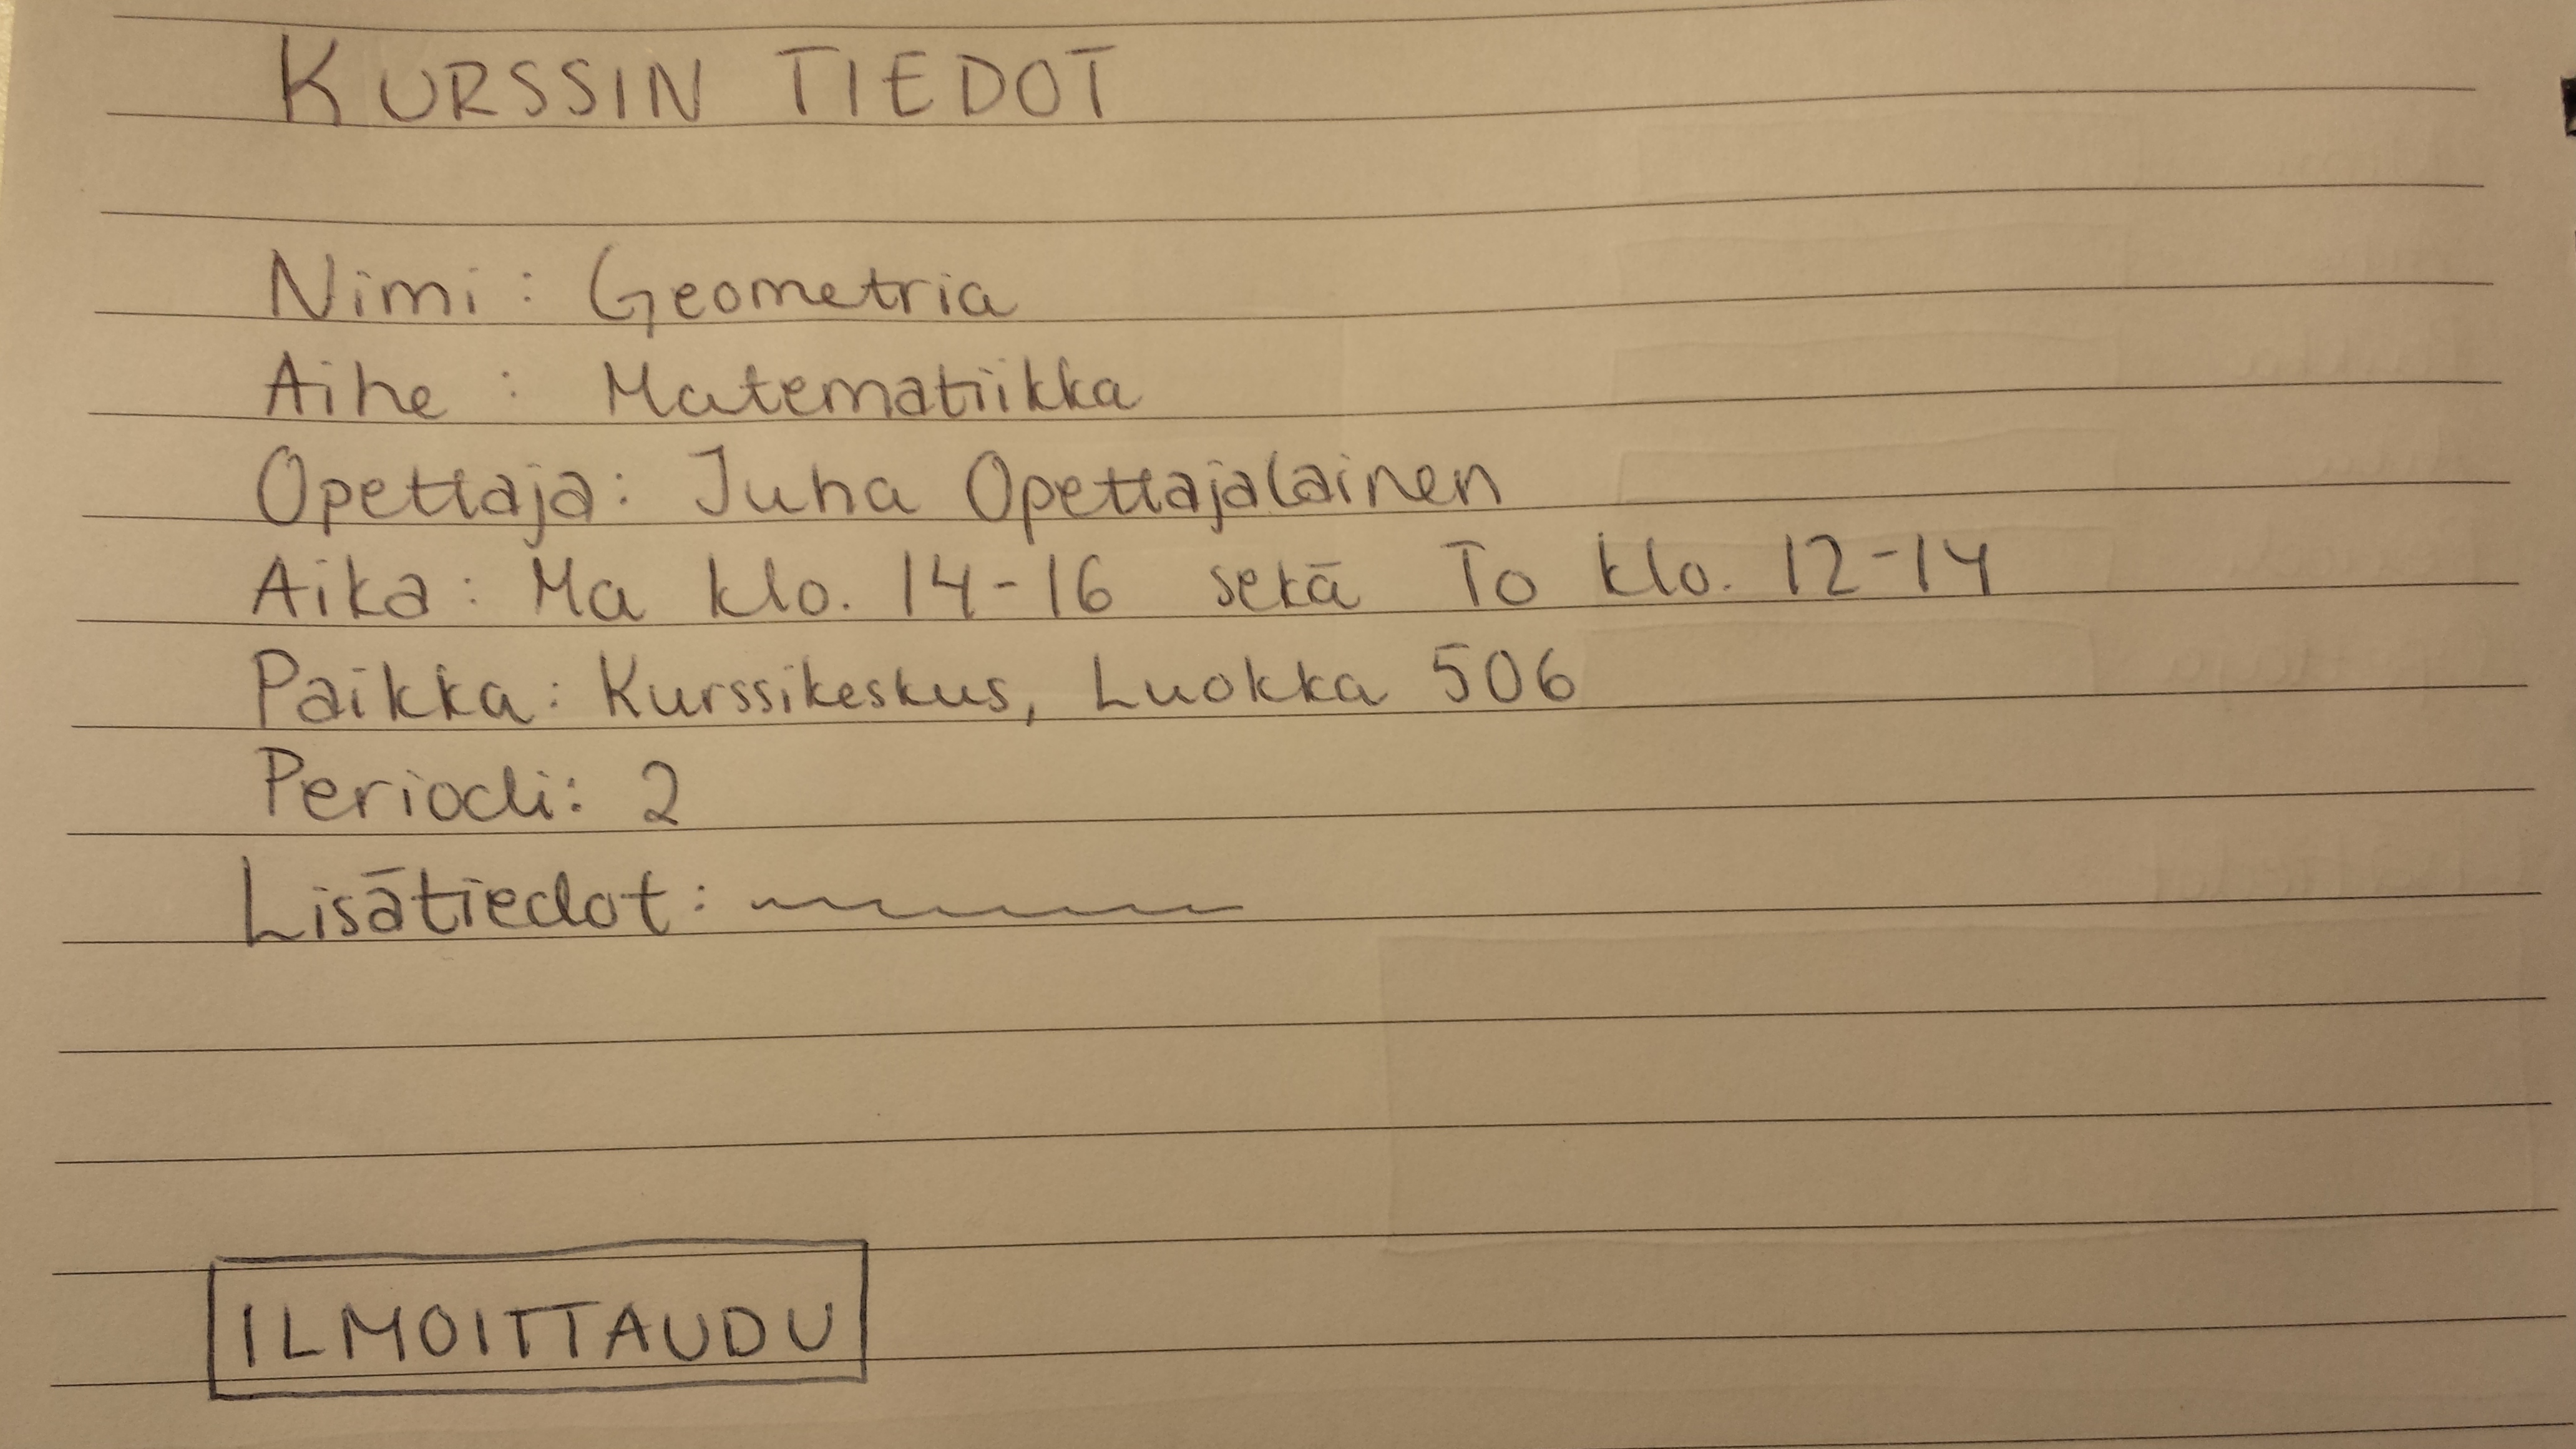 KURSSIN TIEDOT
Nimi: Geometria
Aihe: Matematiikka
Opettaja: Juha Opettajalainen
Aika: Ma klo. 14-16 sekä To klo. 12-14
Paikka: Kurssikeskus, Luokka 506
Periodi: 2
Lisätiedot:
ILMOITTAUDU